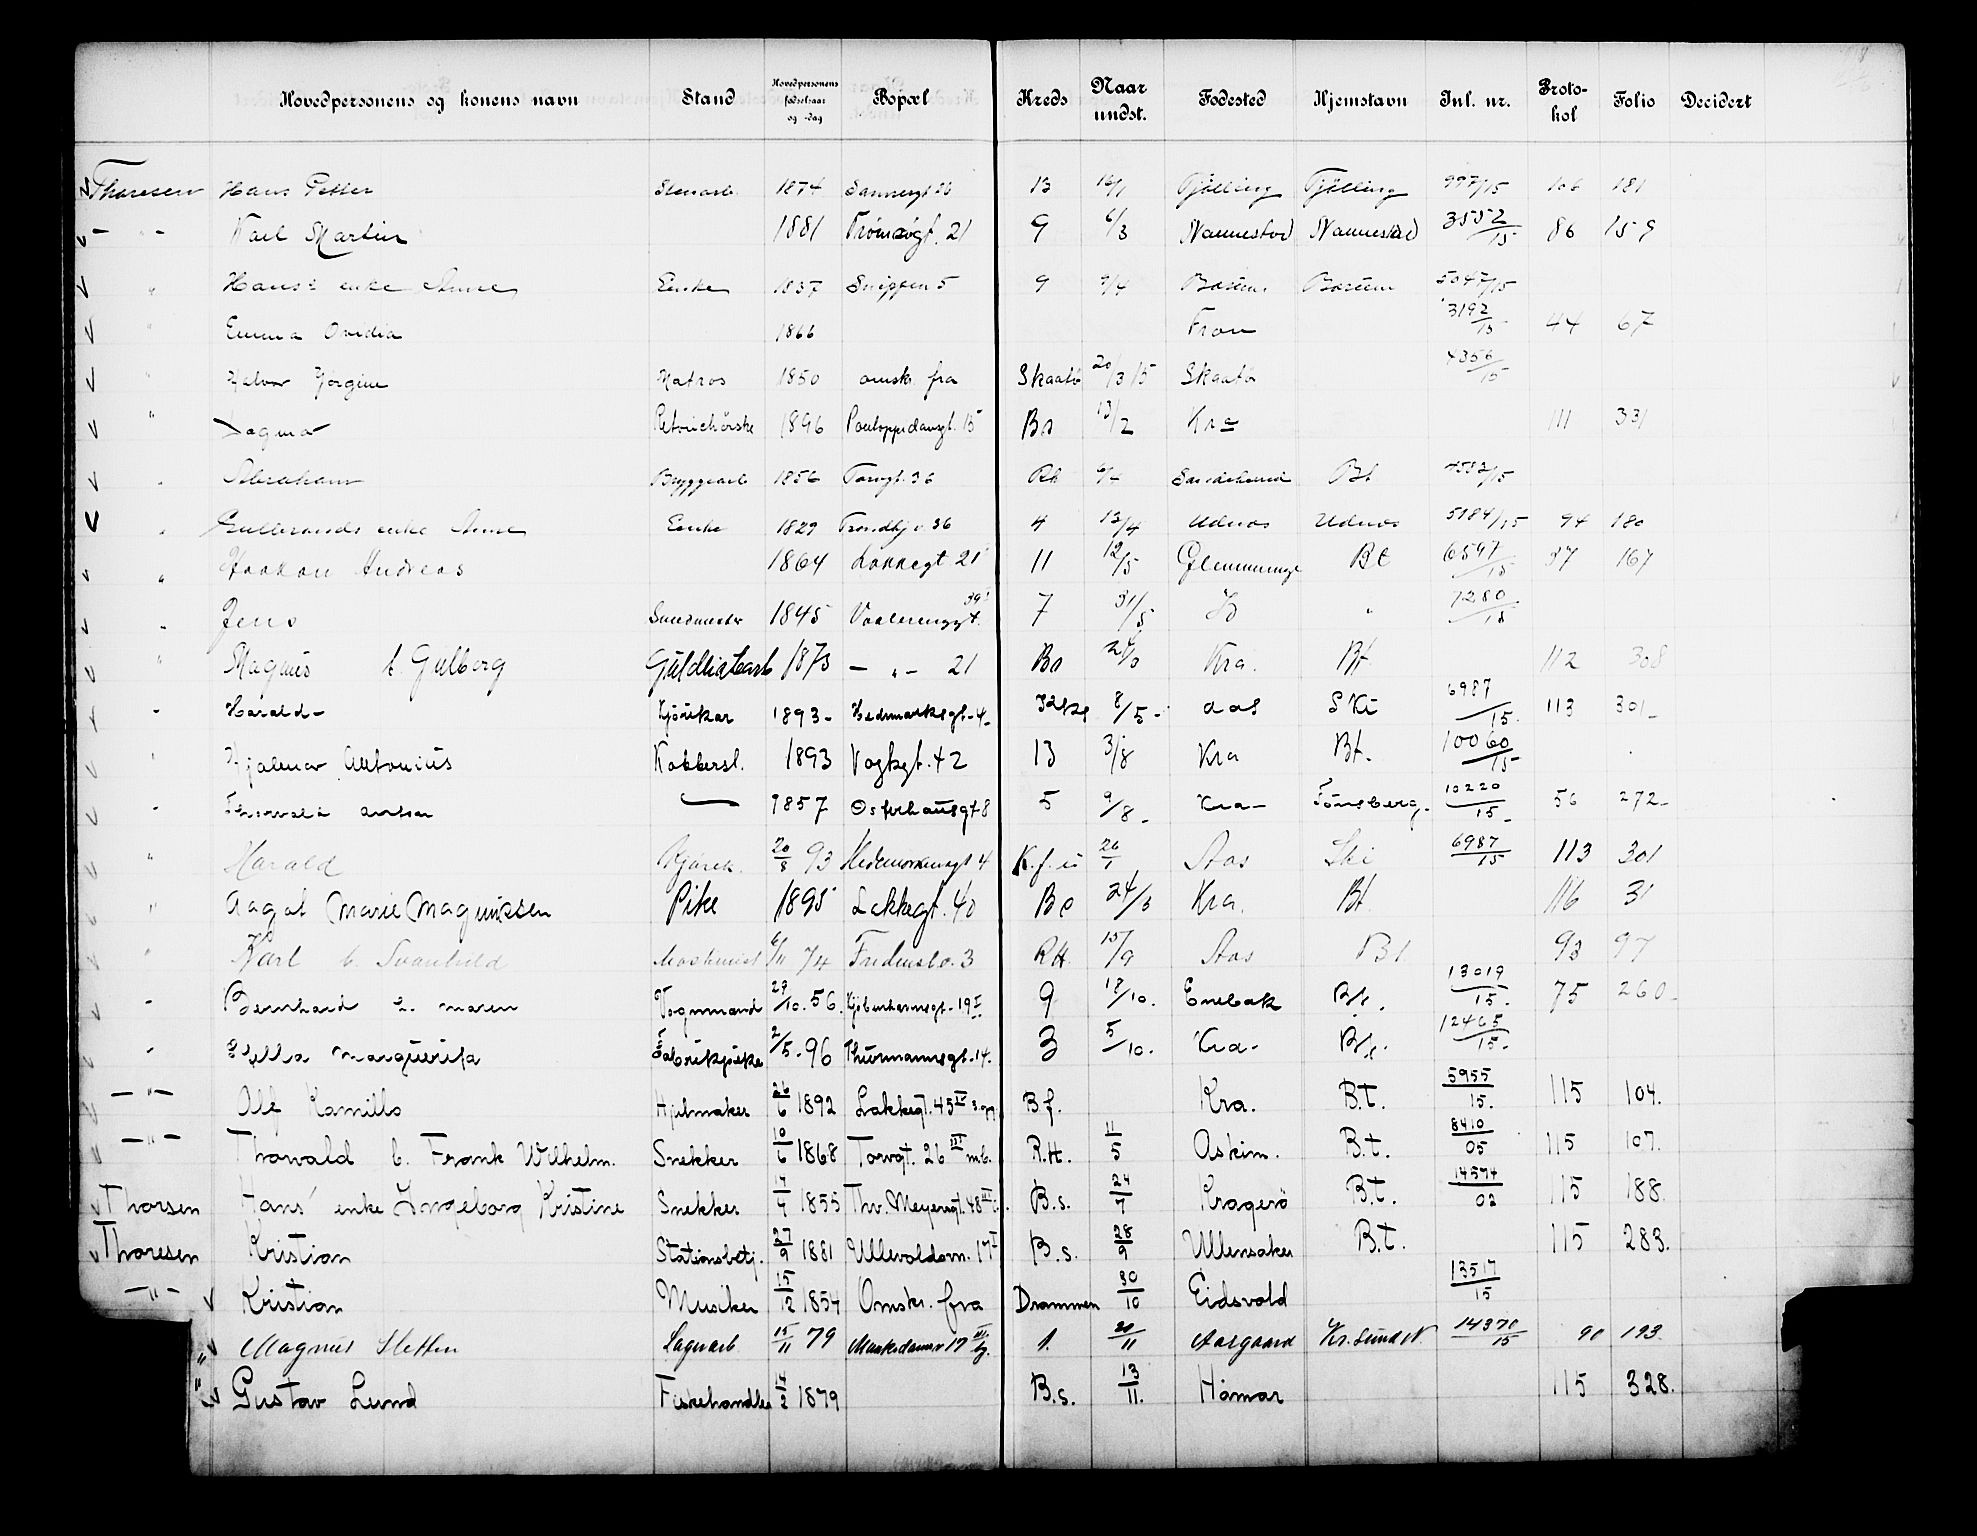 Hovedpersonens og konens navn Stand Hovedpersonens fødselsaar og -dag Bopæl Kreds Naar undst. Fødested Hjemstavn Inl. nr. Proto-kol Folio Decidert
Thoresen Hans Petter Stenarb. 1874 Sannergt 26 13 16/1 Tjölling Tjölling 997/15 106 181
— " — Karl Martin 1881 Tromsøgt. 21 9 6/3 Nannestad Nannestad 3552/15 86 159
" Hans's enke Anne Enke 1837 Snippen 5 9 9/4 Bærum Bærum 5047/15
" Emma Ovidia 1866 Fron 3192/15 44 67
" Halvor Jørgine Matros 1850 omsk. fra Skaatö 20/3 15 Skaatö 4356/15
" Dagmar Retouchörske 1896 Pontoppidansgt. 15 Bs 13/2 Kra 111 331
" Abraham Bryggearb 1856 Torvgt. 36 RH 9/4 Sandeherred Bt 4582/15
" Gulbrands enke Anne Enke 1829 Trondhj.v. 36 4 13/4 Udnes Udnes 5184/15 94 180
" Haakon Andreas 1864 Lakkegt 21 11 12/5 Glemminge Bt 6597/15 37 167
" Jens Smedmester 1845 Vaalerenggt. 39 I 7 31/5 Id " 7280/15
" Magnus f. Gulborg Guldlistearb 1873 — " — 21 Bs Kra. Bt 112 308
" Harald Gjörtkar 1893 Hedmarksgt. 4 8/5 Aas Ski 6987/15 113 301
" Hjalmar Antonius Kobbersl. 1893 Vogtsgt. 42 13 3/8 Kra Bt. 10060/15
" Thorvald Anton — 1857 Osterhausgt 8 5 9/8 Kra Tönsberg 10220/15 56 272
" Harald 20/8 93 Hedemarkensgt 4 K.f. is 26/1 Aas Ski 6987/15 113 301
" Aagot Marie Magnussen Pike 1895 Lakkegt. 40 Bs 24/3 Kra. Bt 116 31
" Karl b. Svanhild Maskinist 6/11 74 Fredensbo. 3 RH. 15/9 Aas Bt 93 97
" Bernhard h. Maren Vognmand 29/10. 56. Kjöbenhavnsgt. 19 I 9 18/10. Enebak Bt. 13019/15. 75 260
" Ella Marguerita Fabrikpike 2/5. 96 Thurmannsgt. 14. 3 5/10. Kra. Bt. 12465/15.
— " — Alf Kamillo Hjelmaker 26/6 1892 Lakkegt. 45 IV B.f. Kra. B.t. 5955/15. 115 104.
— " — Thorvald b. Frank Wilhelm. Snekker 10/6 1868 Torvgt. 26 III m.b. R.H. 11/5 Askim. B.t. 8410/05 115 107.
Thorsen Hans' enke Ingeborg Kristine Snekker 17/7 1855 Thv. Meyersgt. 48 III B.s. 24/7 Kragerö B.t. 14574/02 115 188.
Thoresen Kristian Stationsbetj. 27/9 1881 Ullevoldsvn. 17 I B.s. 28/9 Ullensaker B.t. 115 283.
— " — Kristian Musiker 15/12 1854 Omskr. fra Drammen 30/10 Eidsvold 13517/15
" Magnus Steffen Sagarb 15/11 79 Munkedamsv 17 III 1. 20/11 Aasgaard Kr.sund N 14370/15 90 193
" Gustav Lund Fiskehandler 14/2 1879 B.s. 13/11. Hamar 115 328.